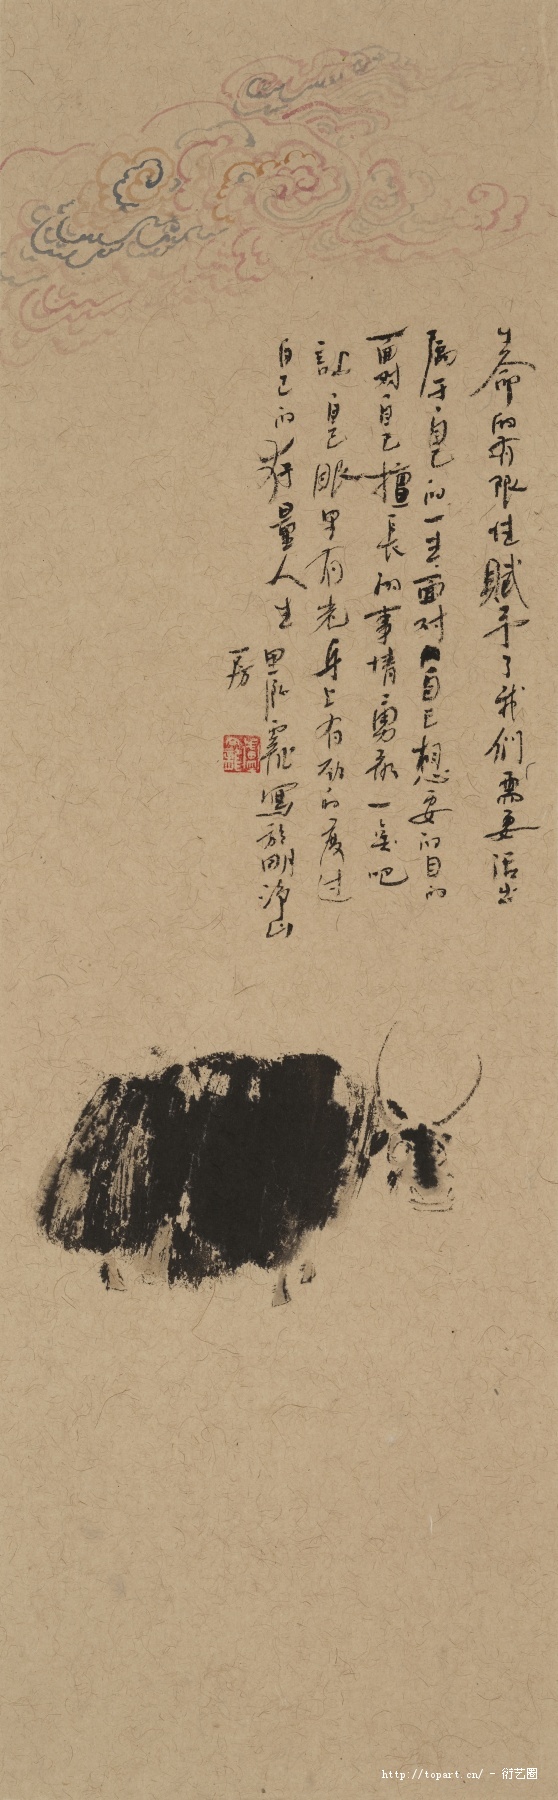 生命的有限性赋予了我们需要活出
属于自己的一生面对自己想要的目的
面对自己擅长的事情勇敢一点吧
让自己眼里有光身上有劲的度过
自己的有量人生
写於明净山
房
http://topart.cn/ - 衍艺圈